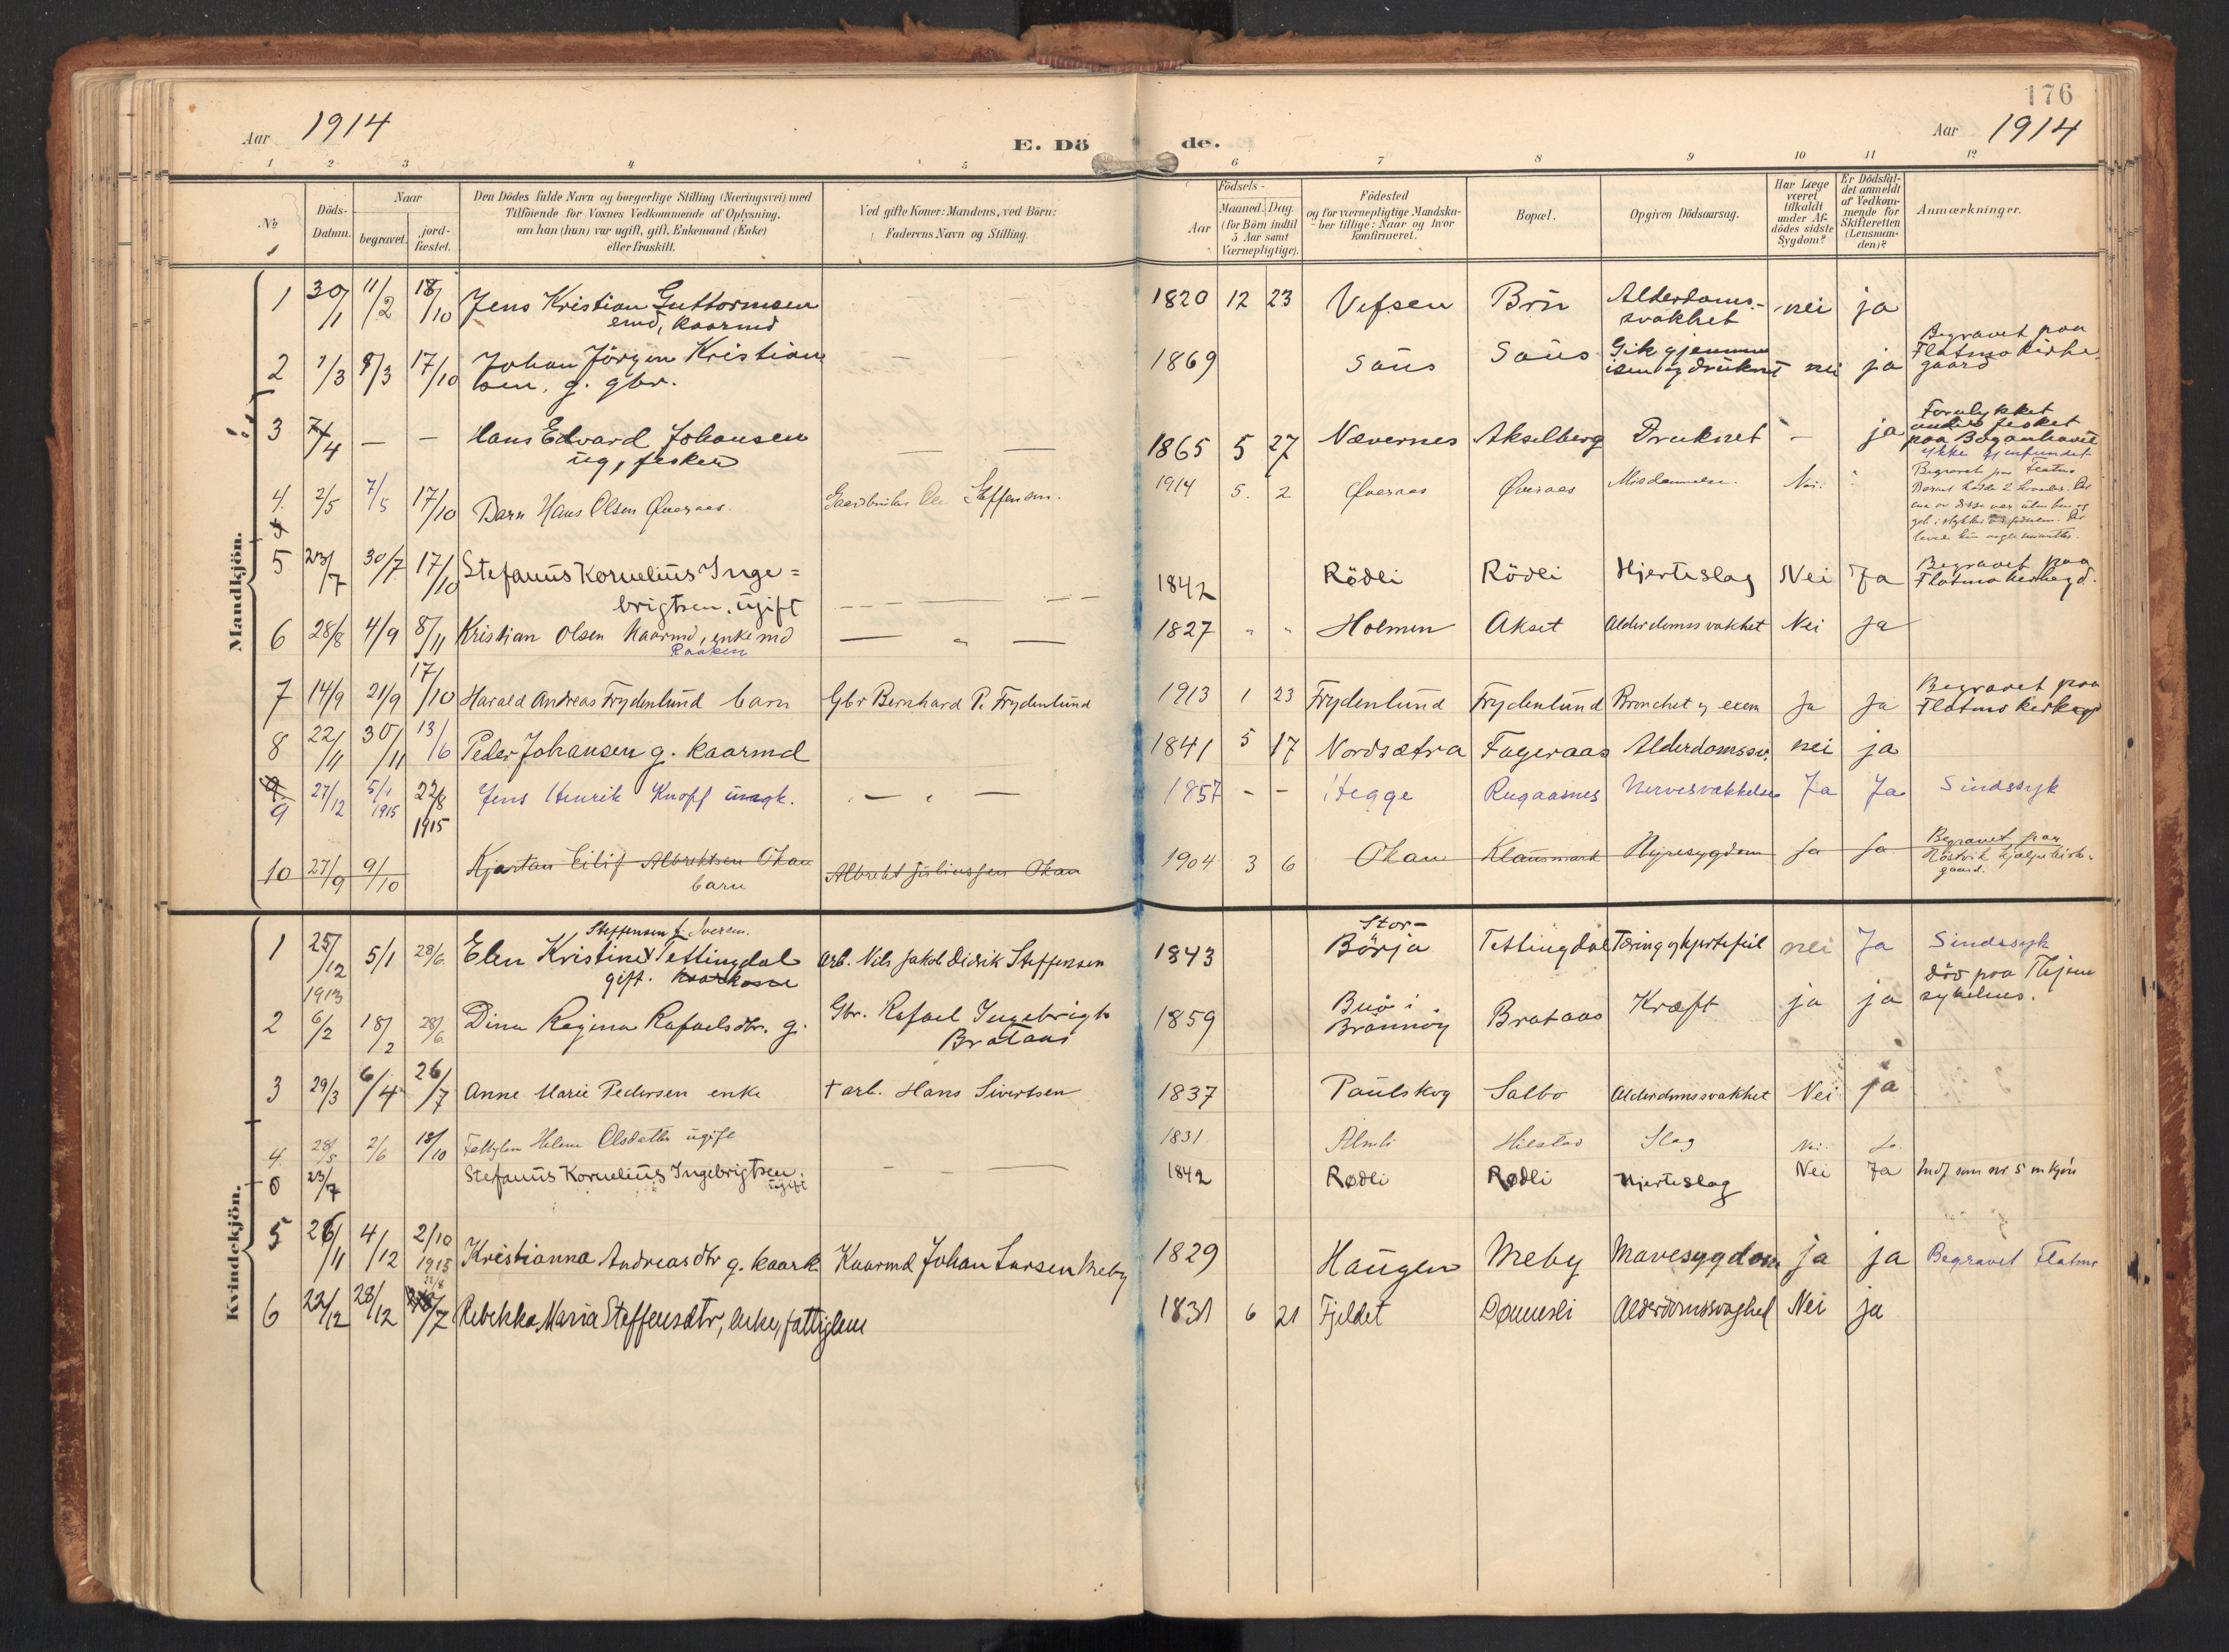 176
Aar 1914
E. Dö de.
Aar 1914
1 2 3 4 5 6 7 8 9 10 11 12
No
Döds-Datum.
Naar
begravet.
jord-fæstet.
Den Dödes fulde Navn og borgerlige Stilling (Næringsvei) med
Tilföiende for Voxnes Vedkommende af Oplysning,
om han (hun) var ugift, gift, Enkemand (Enke)
eller fraskilt.
Ved gifte Koner: Mandens, ved Börn:
Faderens Navn og Stilling.
Födsels-
Aar
Maaned. Dag.
(for Börn indtil
5 Aar samt
Værnepligtige).
Födested
og for værnepligtige Mandska-
ber tillige: Naar og hvor
konfirmeret.
Bopæl.
Opgiven Dödsaarsag.
Har Læge
været
tilkaldt
under Af-
dödes sidste
Sygdom?
Er Dödsfal-
det anmeldt
af Vedkom-
mende for
Skifteretten
(Lensman-
den)?
Anmærkninger.
Mandkjön.
1 30/1 11/2 18/10 Jens Kristian Guttormsen
emd, kaarmd
1820 12 23 Vefsen Brü Alderdoms-
svakhet nei ja
2 1/3 8/3 17/10 Johan Jörgen Kristian
sen, g. gbr.
1869 Saüs Saüs Gik gjennem
isen og druknet nei ja Begravet paa
Flatmo kirke
gaard
3 7/4 — — Hans Edvard Johansen
ug, fisker
1865 5 27 Nævernes Akselberg Druknet — ja Forulykket
under fisket
paa
ikke gjenfundet
4. 2/5 7/5 17/10 Barn Hans Olsen Øveraas. Gaardbruker Ole Steffensen.
1914 5. 2 Øveraas Øveraas Misdannelse. Nei. Begravet paa Flatmo
Barnet hadde 2 hoveder.
5 23/7 30/7 17/10 Stefanüs Kornelius Inge=
brigtsen. ügift
1842 Rödli Rödli Hjerteslag Nei Ja Begravet paa
Flatmo kirkegd.
6 28/8 4/9 8/11 Kristian Olsen Kaarmd, enkemd — " —
Raaken
1827 " " Holmen Akset Alderdomssvakhet Nei Ja
7 14/9 21/9 17/10 Harald Andreas Frydenlünd barn Gbr Bernhard P. Frydenlünd
1913 1 23 Frydenlünd Frydenlünd Bronchet og exem Ja Ja Begravet paa
Flatmo kirkegd
8 22/11 30/11 13/6 Peder Johansen g. kaarmd
1841 5 17 Nordsætra Fageraas Alderdomssv. nei ja
9 27/12 5/1 1915 22/8 1915 Jens Henrik Knoff üngk. — " —
1857 - - Hegge Rugaasnes Nervesvakkelse Ja Ja Sindssyk
10 27/9 9/10 Kjartan Eilif Albrektsen Okan
barn Albrekt Juliussen Okan
1904 3 6 Okan Klausmark Nyresygdom Ja Ja Begravet paa
Röstvik hjælpekirke-
gaard.
Kvindekjön.
Steffensen f. Iversen.
1 25/12 1913 5/1 28/6. Elen Kristine Tettingdal arb. Nils Jakob Didrik Steffensen
gift. kaarkone
1843 Stor-
Börja Tettingdal Tæring og hjertefeil nei Ja Sindssyk
död paa Thjem
sykehus.
2 6/2 18/2 28/6 Dina Regina Rafaelsdtr. g. Gbr. Rafael Ingebrigts
Brataas
1859 Buö i
Brönnöy Brataas Kræft ja ja
3 29/3 6/4 26/7 Anne Marie Pedersen enke † arb. Hans Sivertsen
1837 Paülskog Salbo Alderdomssvakhet Nei ja
4. 28/5 2/6 18/10 Fattiglem Helene Olsdatter ügift
1831 Almli Hilstad Slag Nei. Ja.
0 23/7 Stefanüs Kornelius Ingebrigtsen.
ügift
1842 Rødli Rødli Hjerteslag Nei Ja Indf som nr 5 mkjön
5 26/11 4/12 2/10 1915 Kristianna Andreasdtr g. kaark. Kaarmd Johan Larsen Meby
1829 Haugen Meby Mavesygdom ja ja Begravet Flatmo
6 22/12 28/12 22/8 Rebekka Maria Steffensdtr, enke, fattiglem
1831 6 21 Fjeldet Dømmesli Alderdomssvaghed Nei ja